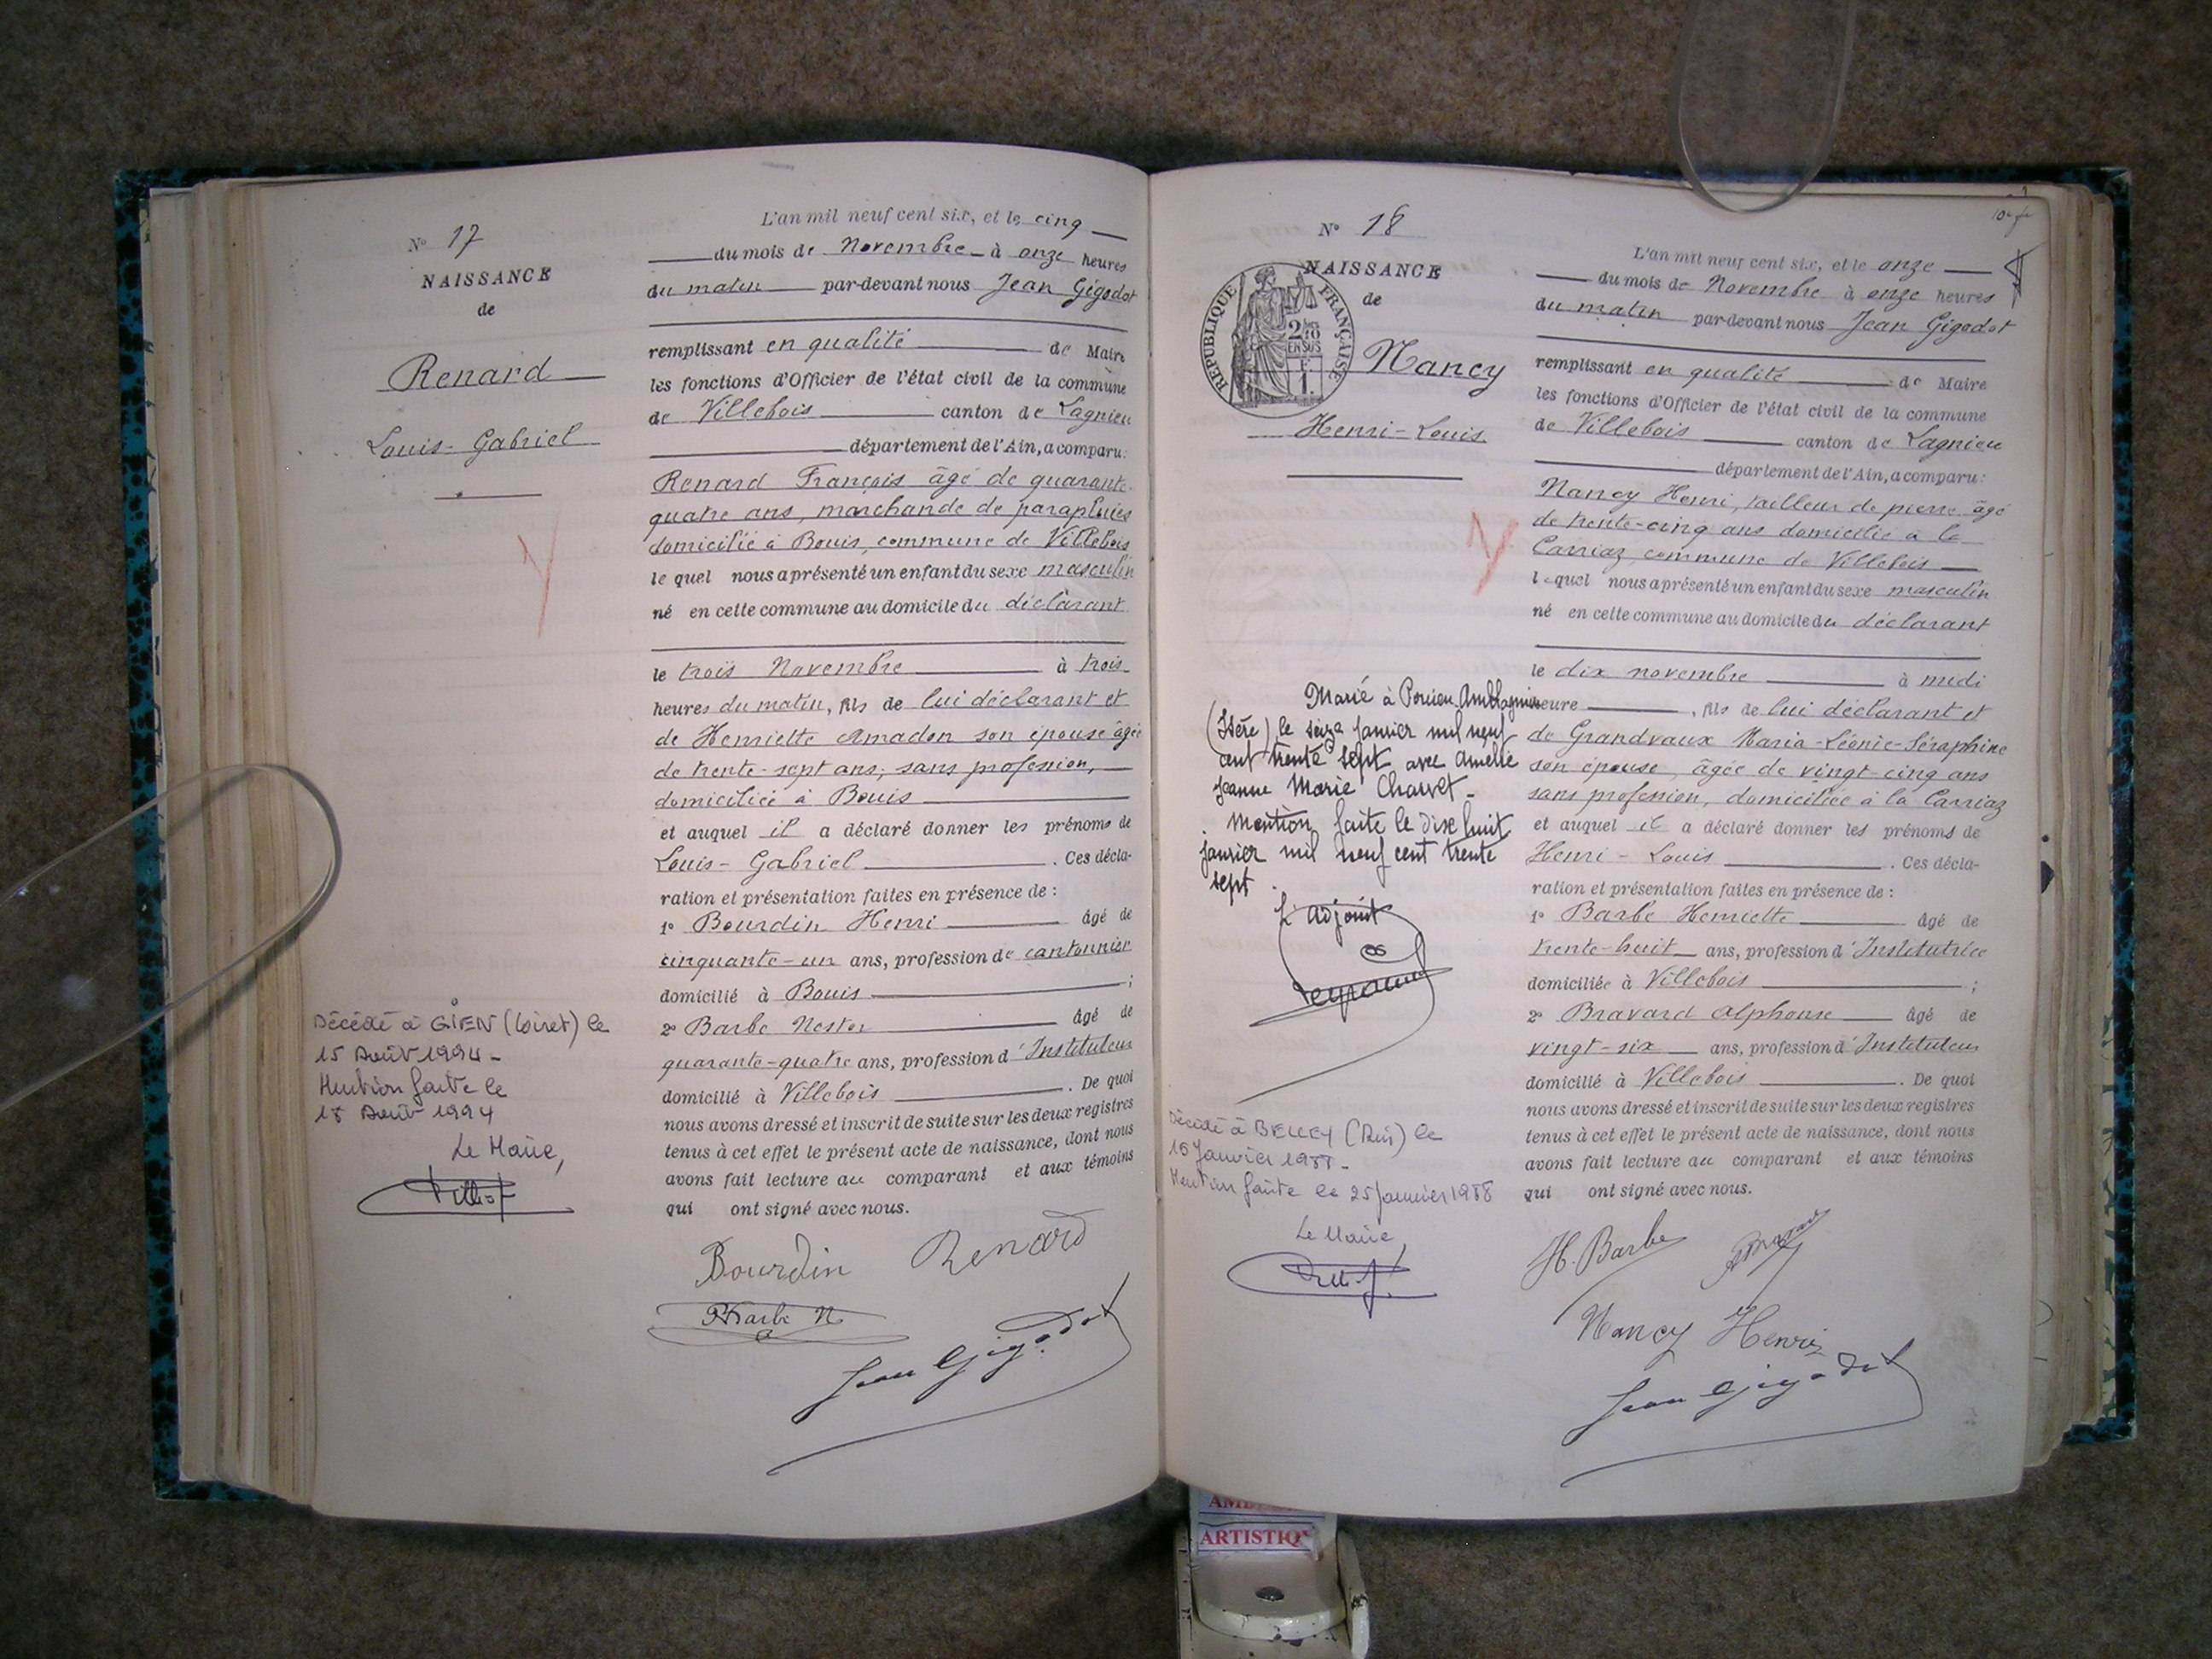 N° 17
NAISSANCE
de
Renard
Louis-Gabriel
Décédé à GIEN (Loiret) le
15 Août 1994 -
Mention faite le
18 Août 1994
Le Maire,
L'an mil neuf cent six, et le cinq
du mois de Novembre à onze heures
du matin par-devant nous Jean Gigodot
remplissant en qualité de Maire
les fonctions d'Officier de l'état civil de la commune
de Villebois canton de Lagnieu
département de l'Ain, a comparu:
Renard François âgé de quarante-
quatre ans, marchande de parapluies
domicilié à Bouis, commune de Villebois
le quel nous a présenté un enfant du sexe masculin
né en cette commune au domicile du déclarant
le trois Novembre à trois
heures du matin, fils de lui déclarant et
de Henriette Amadon son épouse âgée
de trente-sept ans, sans profession,
domiciliée à Bouis
et auquel il a déclaré donner les prénoms de
Louis-Gabriel. Ces décla-
ration et présentation faites en présence de :
1° Bourdin Henri âgé de
cinquante-un ans, profession de cantonnier
domicilié à Bouis ;
2° Barbe Nestor âgé de
quarante-quatre ans, profession d'Instituteur
domicilié à Villebois. De quoi
nous avons dressé et inscrit de suite sur les deux registres
tenus à cet effet le présent acte de naissance, dont nous
avons fait lecture au comparant et aux témoins
qui ont signé avec nous.
Bourdin Renard
Barbe N
Jean Gigodot
N° 18
NAISSANCE
de
RÉPUBLIQUE FRANÇAISE
2/10
EN SUS
1F
Nancy
Henri-Louis
Marié à Porcieu Amblagnieu
(Isère) le seize janvier mil neuf
cent trente sept avec Amélie
Jeanne Marie Charvet -
Mention faite le dix huit
janvier mil neuf cent trente
sept.
L'adjoint
Décédé à BELLEY (Ain) le
16 Janvier 1988 -
Mention faite le 25 Janvier 1988
Le Maire,
L'an mil neuf cent six, et le onze
du mois de Novembre à onze heures
du matin par-devant nous Jean Gigodot
remplissant en qualité de Maire
les fonctions d'Officier de l'état civil de la commune
de Villebois canton de Lagnieu
département de l'Ain, a comparu:
Nancy Henri, tailleur de pierre âgé
de trente-cinq ans domicilié à la
Carriaz commune de Villebois
lequel nous a présenté un enfant du sexe masculin
né en cette commune au domicile du déclarant
le dix novembre à midi
heure, fils de lui déclarant et
de Grandvaux Maria-Léonie-Séraphine
son épouse, âgée de vingt-cinq ans
sans profession, domiciliée à la Carriaz
et auquel il a déclaré donner les prénoms de
Henri-Louis. Ces décla-
ration et présentation faites en présence de :
1° Barbe Henriette âgé de
trente-huit ans, profession d'Institutrice
domiciliée à Villebois ;
2° Bravard Alphonse âgé de
vingt-six ans, profession d'Instituteur
domicilié à Villebois. De quoi
nous avons dressé et inscrit de suite sur les deux registres
tenus à cet effet le présent acte de naissance, dont nous
avons fait lecture au comparant et aux témoins
qui ont signé avec nous.
H. Barbe
Nancy Henri
Jean Gigodot
ARTISTIQ